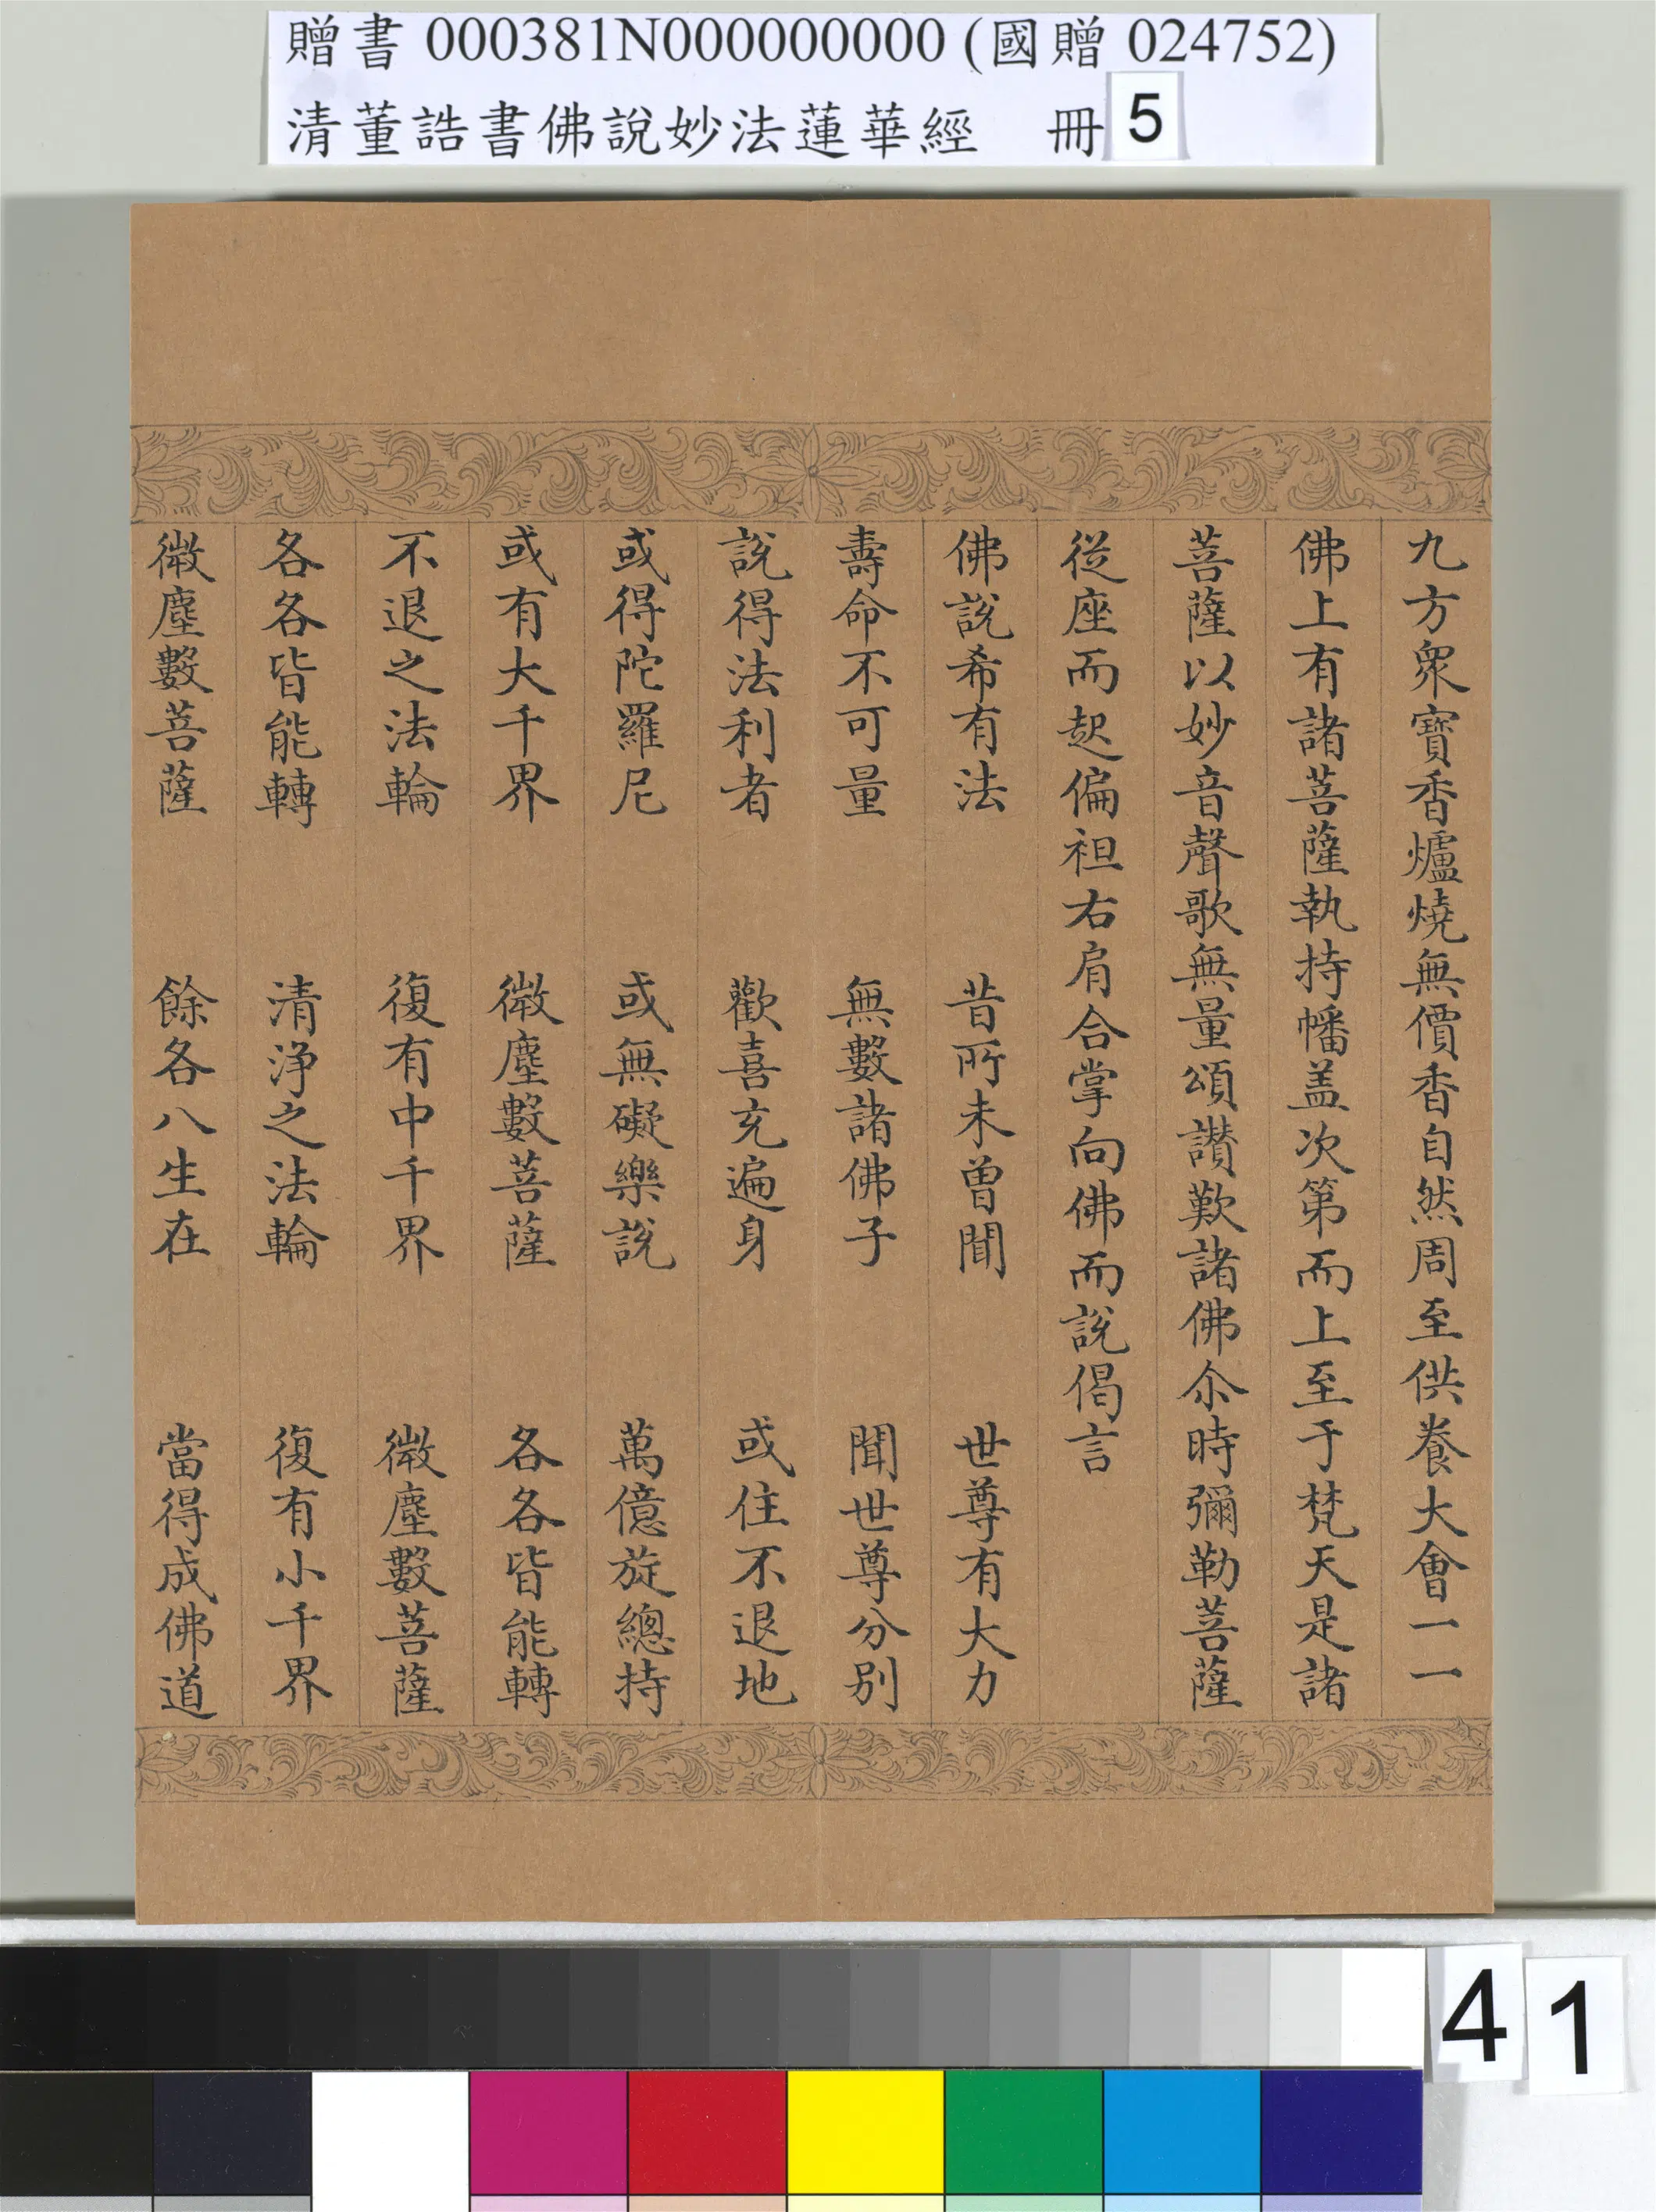 贈書 000381N000000000 (國贈 024752)
清董誥書佛說妙法蓮華經 冊 5
九方衆寶香爐燒無價香自然周至供養大會一一
佛上有諸菩薩執持幡盖次第而上至于梵天是諸
菩薩以妙音聲歌無量頌讃歎諸佛尒時彌勒菩薩
從座而起偏袒右肩合掌向佛而說偈言
佛說希有法 昔所未曾聞 世尊有大力
壽命不可量 無數諸佛子 聞世尊分别
說得法利者 歡喜充遍身 或住不退地
或得陀羅尼 或無礙樂說 萬億旋總持
或有大千界 微塵數菩薩 各各皆能轉
不退之法輪 復有中千界 微塵數菩薩
各各皆能轉 清淨之法輪 復有小千界
微塵數菩薩 餘各八生在 當得成佛道
41